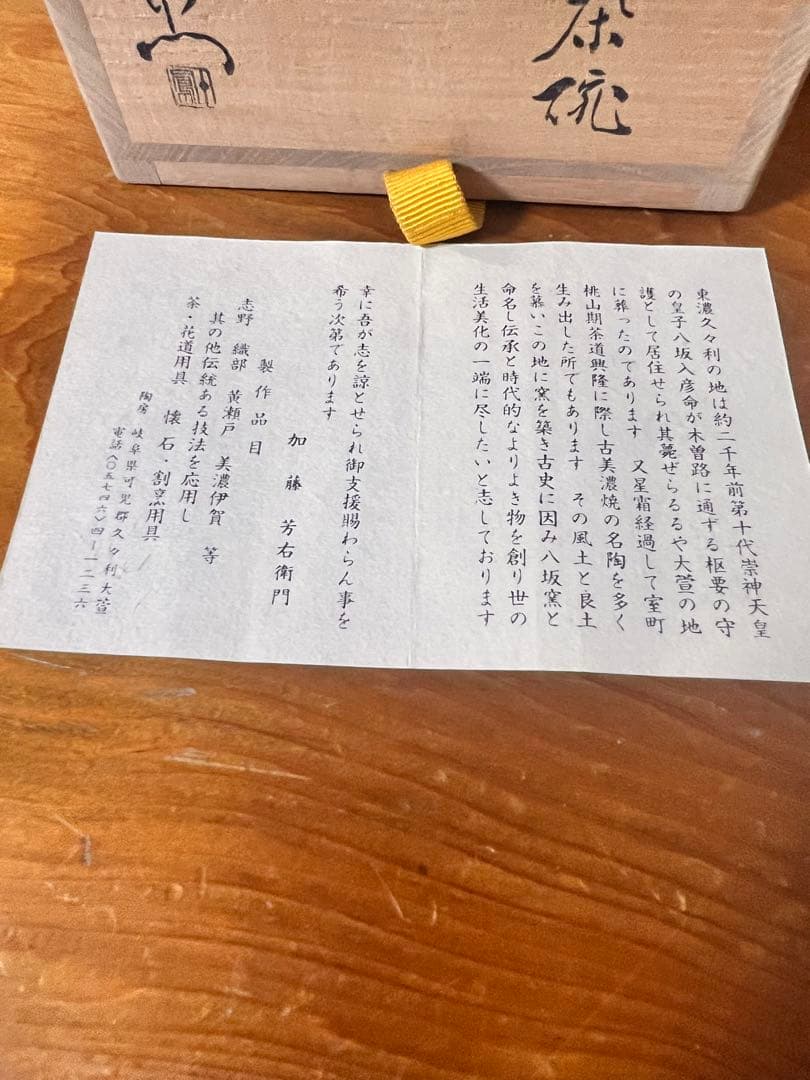 茶碗
東濃久々利の地は約二千年前第十代崇神天皇
の皇子八坂入彦命が木曽路に通ずる枢要の守
護として居住せられ其薨ぜらるるや大萱の地
に葬ったのであります 又星霜経過して室町
桃山期茶道興隆に際し古美濃焼の名陶を多く
生み出した所でもあります その風土と良土
を慕いこの地に窯を築き古史に因み八坂窯と
命名し伝承と時代的なよりよき物を創り世の
生活美化の一端に尽したいと志しております
幸に吾が志を諒とせられ御支援賜わらん事を
希う次第であります
加藤芳右衛門
製作品目
志野 織部 黄瀬戸 美濃伊賀 等
其の他伝統ある技法を応用し
茶・花道用具 懐石・割烹用具
陶房 岐阜県可児郡久々利大萱
電話〈〇五七四六〉四―一二三六